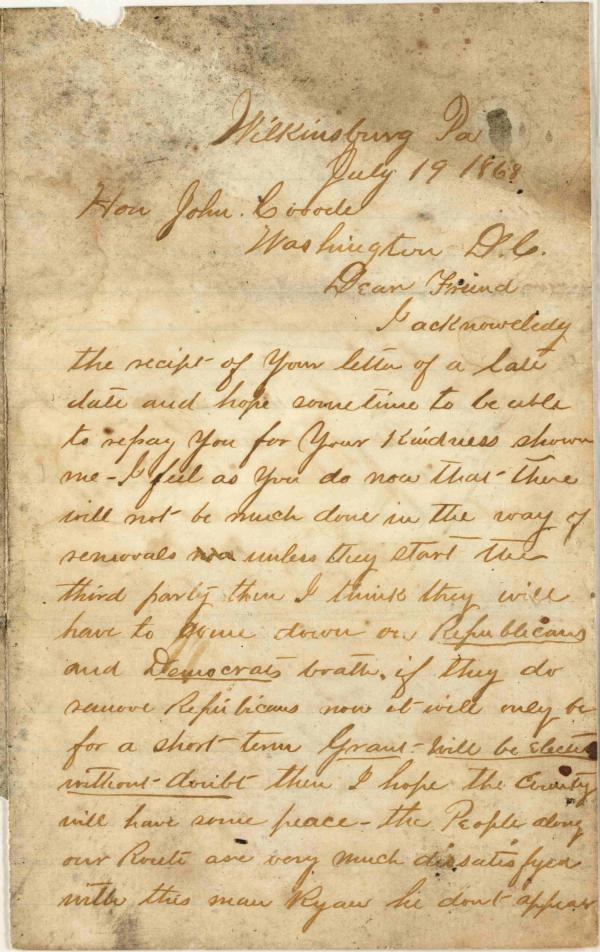 Wilkinsburg Pa
July 19 1868
Hon John. Covode
Washington D.C.
Dear Friend
I acknoweledg
the recipt of Your letter of a late
date and hope sometime to be able
to repay You for Your Kindness shown
me - I feel as You do now that there
will not be much done in the way of
removals unless they start the
third party then I think they will
have to come down on Republicans
and Democrats boath. if they do
remove Republicans now it will only be
for a short term Grant will be Elected
without doubt then I hope the County
will have some peace - the People along
our Route are very much dissatisfyed
with this man Ryan he dont appear